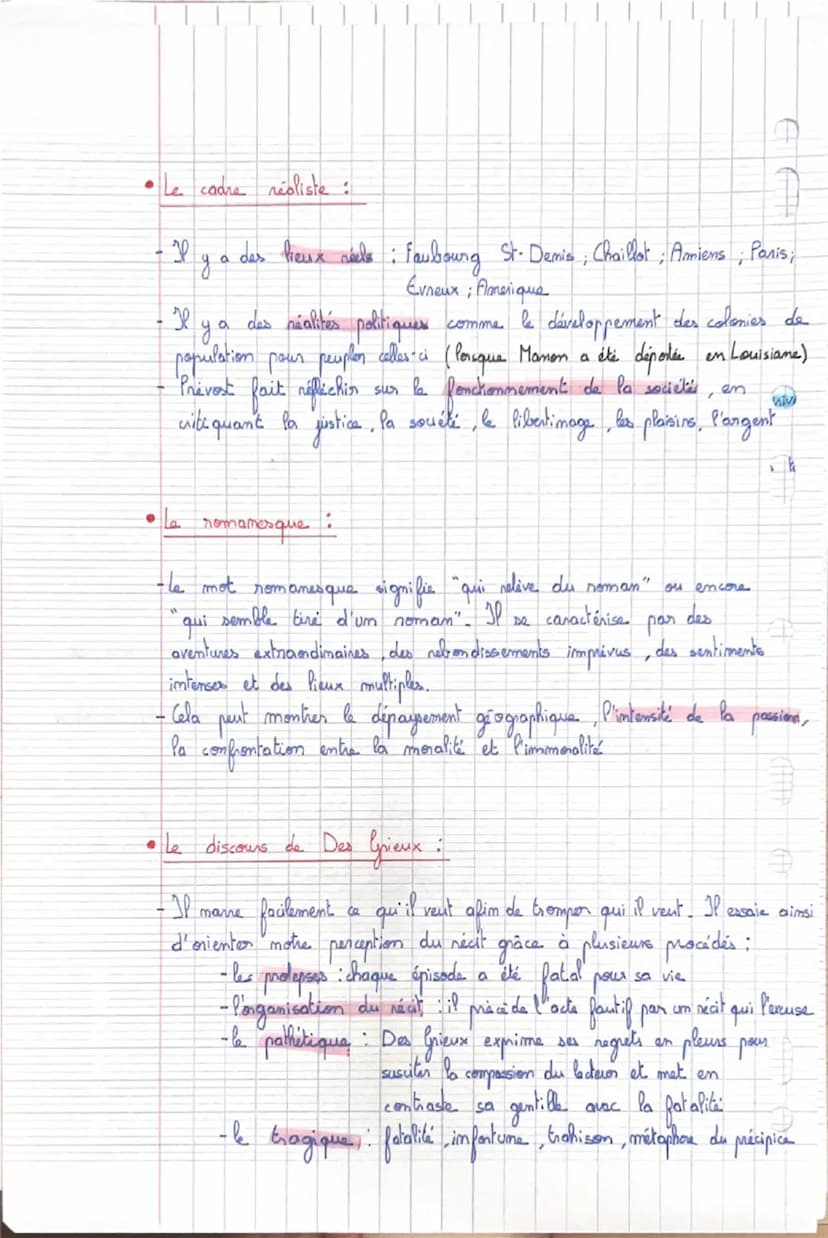 • Le cadre réaliste :
- Il y a des lieux réels : Faubourg St-Denis ; Chaillot ; Amiens ; Paris ;
Evreux ; Amérique
- Il y a des réalités politiques comme le développement des colonies de
population pour peupler celles-ci (lorsque Manon a été déportée en Louisiane)
- Prévost fait réfléchir sur le fonctionnement de la société, en
critiquant la justice, la société, le libertinage, les plaisirs, l'argent
• Le romanesque :
- Le mot romanesque signifie "qui relève du roman" ou encore
"qui semble tiré d'un roman". Il se caractérise par des
aventures extraordinaires, des rebondissements imprévus, des sentiments
intenses et des lieux multiples.
- Cela peut montrer le dépaysement géographique, l'intensité de la passion,
la confrontation entre la moralité et l'immoralité
• Le discours de Des Grieux :
- Il narre facilement ce qu'il veut afin de tromper qui il veut. Il essaie ainsi
d'orienter notre perception du récit grâce à plusieurs procédés :
- les prolepses : chaque épisode a été fatal pour sa vie
- l'organisation du récit : il précède l'acte fautif par un récit qui l'excuse
- le pathétique : Des Grieux exprime ses regrets en pleurs pour
susciter la compassion du lecteur et met en
contraste sa gentille avec la fatalité
- le tragique : fatalité, infortune, trahison, métaphore du précipice